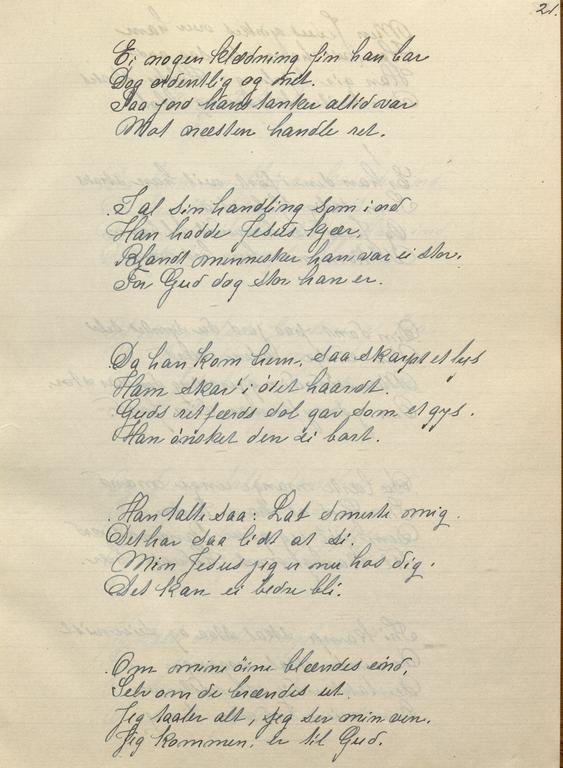 21.
Ei nogen klædning fin han bar
Dog ordentlig og net.
Paa jord hans tanker altid var
Mot næsten handle ret.
I al sin handling som i ord
Han hadde Jesus kjær,
Blandt mennesker han var ei stor.
For Gud dog stor han er.
Da han kom hem, saa skarpt et lys
Ham skar i öiet haardt.
Guds retfærds sol gav som et gys.
Han önsket den ei bort.
Han talte saa: Lat smerte mig.
Det har saa lidt at si.
Min Jesus jeg er nu hos dig.
Det kan ei bedre bli.
Om mine öine blændes end,
Selv om de brændes ut.
Jeg taaler alt, jeg ser min ven.
Jeg kommen, er til Gud.